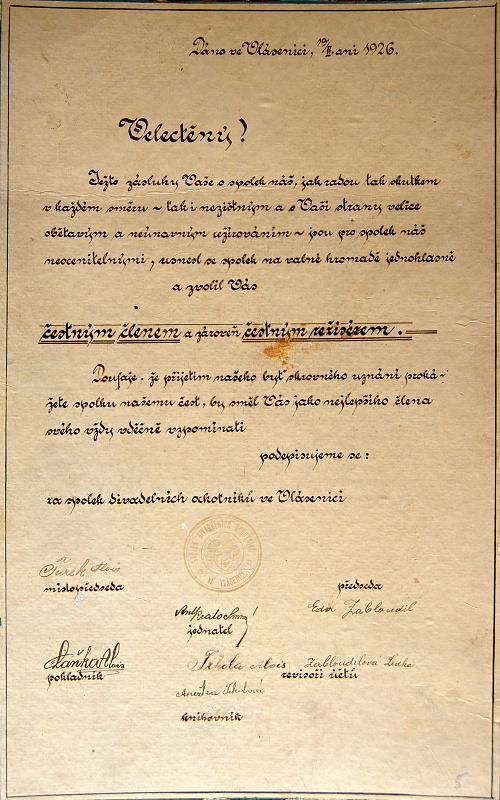 Dáno ve Vlásenici, 19/II. ani 1926.
Velectěný!
Ježto zásluhy Vaše o spolek náš, jak radou tak skutkem
v každém směru ~ tak i nezištným a s Vaší strany velice
obětavým a neúnavným režírováním ~ jsou pro spolek náš
neocenitelnými, usnesl se spolek na valné hromadě jednohlasně
a zvolil Vás
čestným členem a zároveň čestným režisérem.
Doufaje, že přijetím našeho byť skrovného uznání proká-
žete spolku našemu čest, by směl Vás jako nejlepšího člena
svého vždy vděčně vzpomínati
podepisujeme se:
za spolek divadelních ochotníků ve Vlásenici
VE VLÁSENICI
Turek Alois
místopředseda
předseda
Eda Zabloudil
Ant. Kratochvíl
jednatel
Vaňka Alois
pokladník
Tikola Alois
Zabloudilová Lidka
revisoři účtů
Anežka Tikalová
knihovník
5